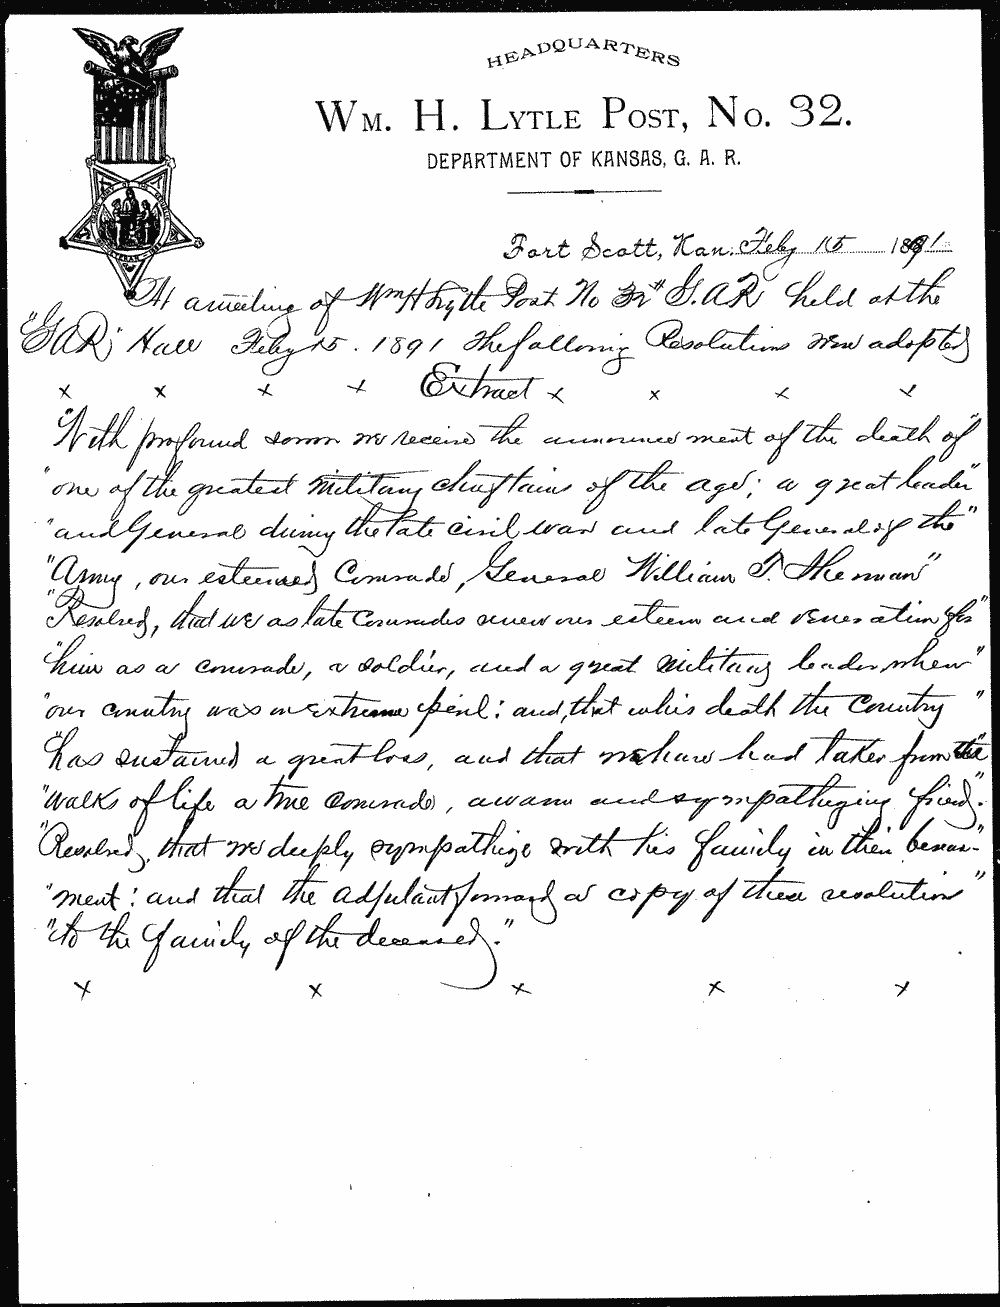 HEADQUARTERS
WM. H. LYTLE POST, NO. 32.
DEPARTMENT OF KANSAS, G. A. R.
Fort Scott, Kan. Feby 15 1891
At a meeting of Wm H Lytle Post No 32" G.A.R held at the
"GAR" Hall Feby 15. 1891 The following Resolutions were adopted
x x x x Extract x x x x
"With profound sorrow we receive the announcement of the death of"
"one of the greatest Military chieftains of the age; a great leader"
"and General during the late civil war and late General of the"
"Army, our esteemed Comrade, General William T. Sherman"
"Resolved, that we as late Comrades renew our esteem and veneration for"
"him as a comrade, a soldier, and a great military leader, when"
"our country was in extreme peril: and, that in his death the Country"
"has sustained a great loss, and that we have had taken from the"
"walks of life a true comrade, a warm and sympathizing friend."
"Resolved, that we deeply sympathize with his family in their bereave-
"ment: and that the adjutant forward a copy of these resolution"
"to the family of the deceased."
x x x x x